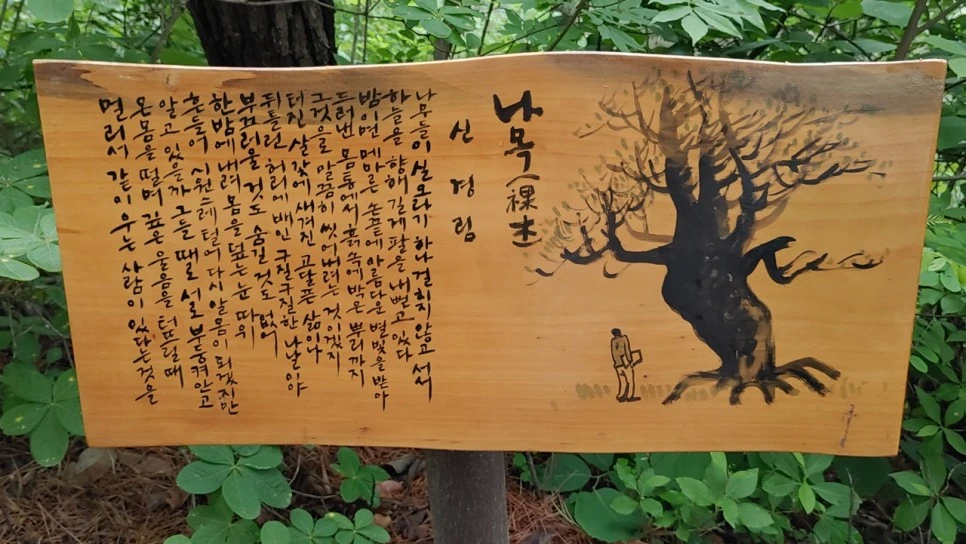 나목(裸木)
신경림
나무들이 실오라기 하나 걸치지 않고 서서
하늘을 향해 길게 팔을 내뻗고 있다
밤이면 메마른 손끝에 아름다운 별빛을 받아
드러낸 몸통에서 흙 속에 박은 뿌리까지
그것으로 말끔히 씻어내려는 것이겠지
터진 살갗에 새겨진 고달픈 삶이나
뒤틀린 허리에 배인 구질구질한 나날이야
부끄러울 것도 숨길 것도 없어
한밤에 내려 몸을 덮는 눈 따위
흔들어 시원스레 털어 다시 알몸이 되겠지만
알고 있을까 그들 때로 서로 부둥켜안고
온몸을 떨며 깊은 울음을 터뜨릴 때
멀리서 같이 우는 사람이 있다는 것을